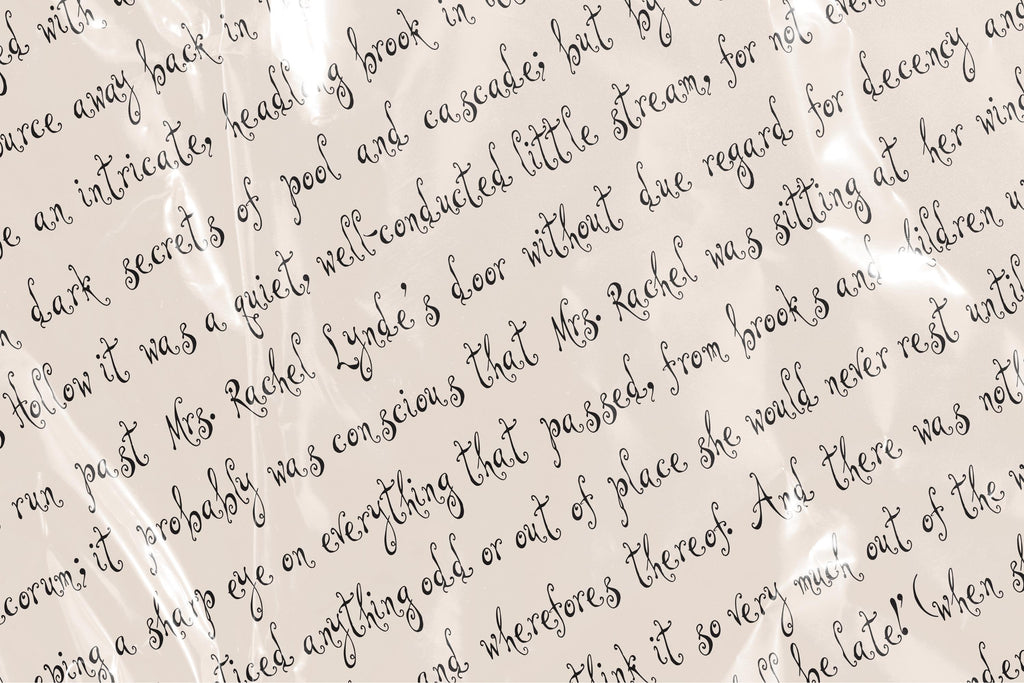 ed with a
ource away back in
be an intricate, headlong brook in
dark secrets of pool and cascade; but by
Hollow it was a quiet, well-conducted little stream, for not even
run past Mrs. Rachel Lynde's door without due regard for decency and
corum; it probably was conscious that Mrs. Rachel was sitting at her wind
eping a sharp eye on everything that passed, from brooks and children u
ticed anything odd or out of place she would never rest until
and wherefores thereof. And there was noth
think it so very much out of the w
ll be late!' (when sh
nder